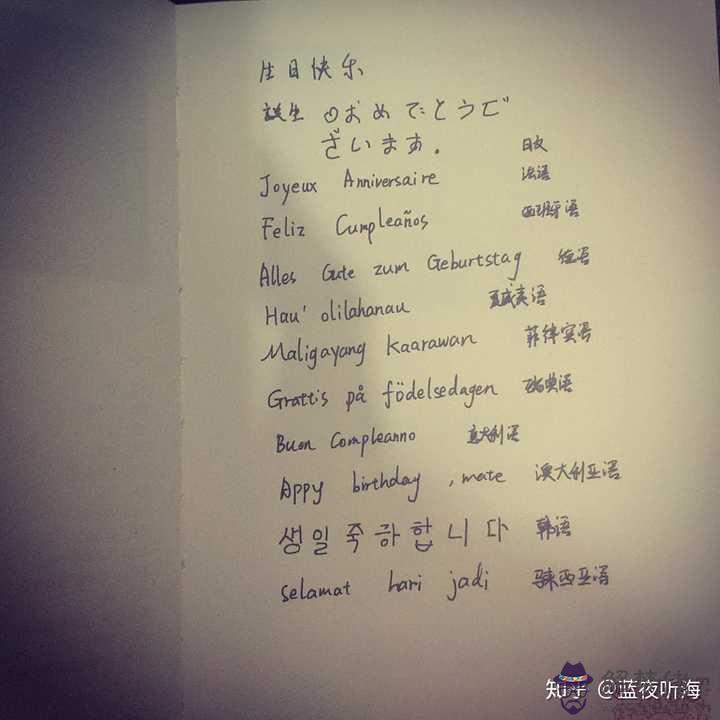 生日快乐
誕生日おめでとうご
ざいます。 日文
Joyeux Anniversaire 法语
Feliz Cumpleaños 西班牙语
Alles Gute zum Geburtstag 德语
Hau' olilahanau 夏威夷语
Maligayang kaarawan 菲律宾语
Grattis på födelsedagen 瑞典语
Buon Compleanno 意大利语
Appy birthday , mate 澳大利亚语
생일축하합니다 韩语
selamat hari jadi 马来西亚语
知乎 @蓝夜听海